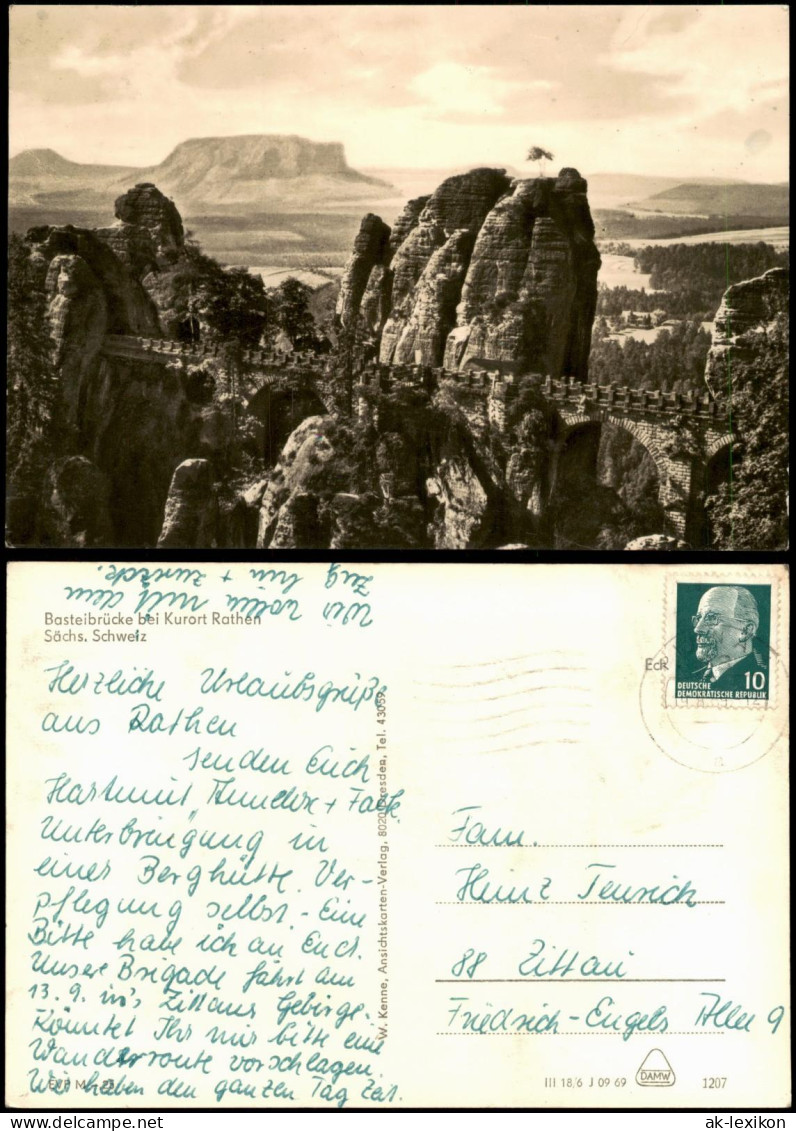 Wir wollen mit dem
Zug hin + zurück.
Basteibrücke bei Kurort Rathen
Sächs. Schweiz
Herzliche Urlaubsgrüße
aus Rathen
senden Euch
Hartmut,
Unterbringung in
einer Berghütte. Ver-
pflegung selbst. - Eine
Bitte habe ich an Euch.
Unsere Brigade fährt am
13.9. in's Zittauer Gebirge.
Könntet Ihr mir bitte eine
Wanderroute vorschlagen.
Wir haben den ganzen Tag Zeit.
EVP M -.25
W. Kenne, Ansichtskarten-Verlag, 8020 Dresden, Tel. 43059
Eck
10
DEUTSCHE
DEMOKRATISCHE REPUBLIK
Fam.
Heinz
88 Zittau
Friedrich-Engels Allee 9
III 18/6 J 09 69
DAMW
1207
ak-lexikon
© www.delcampe.net